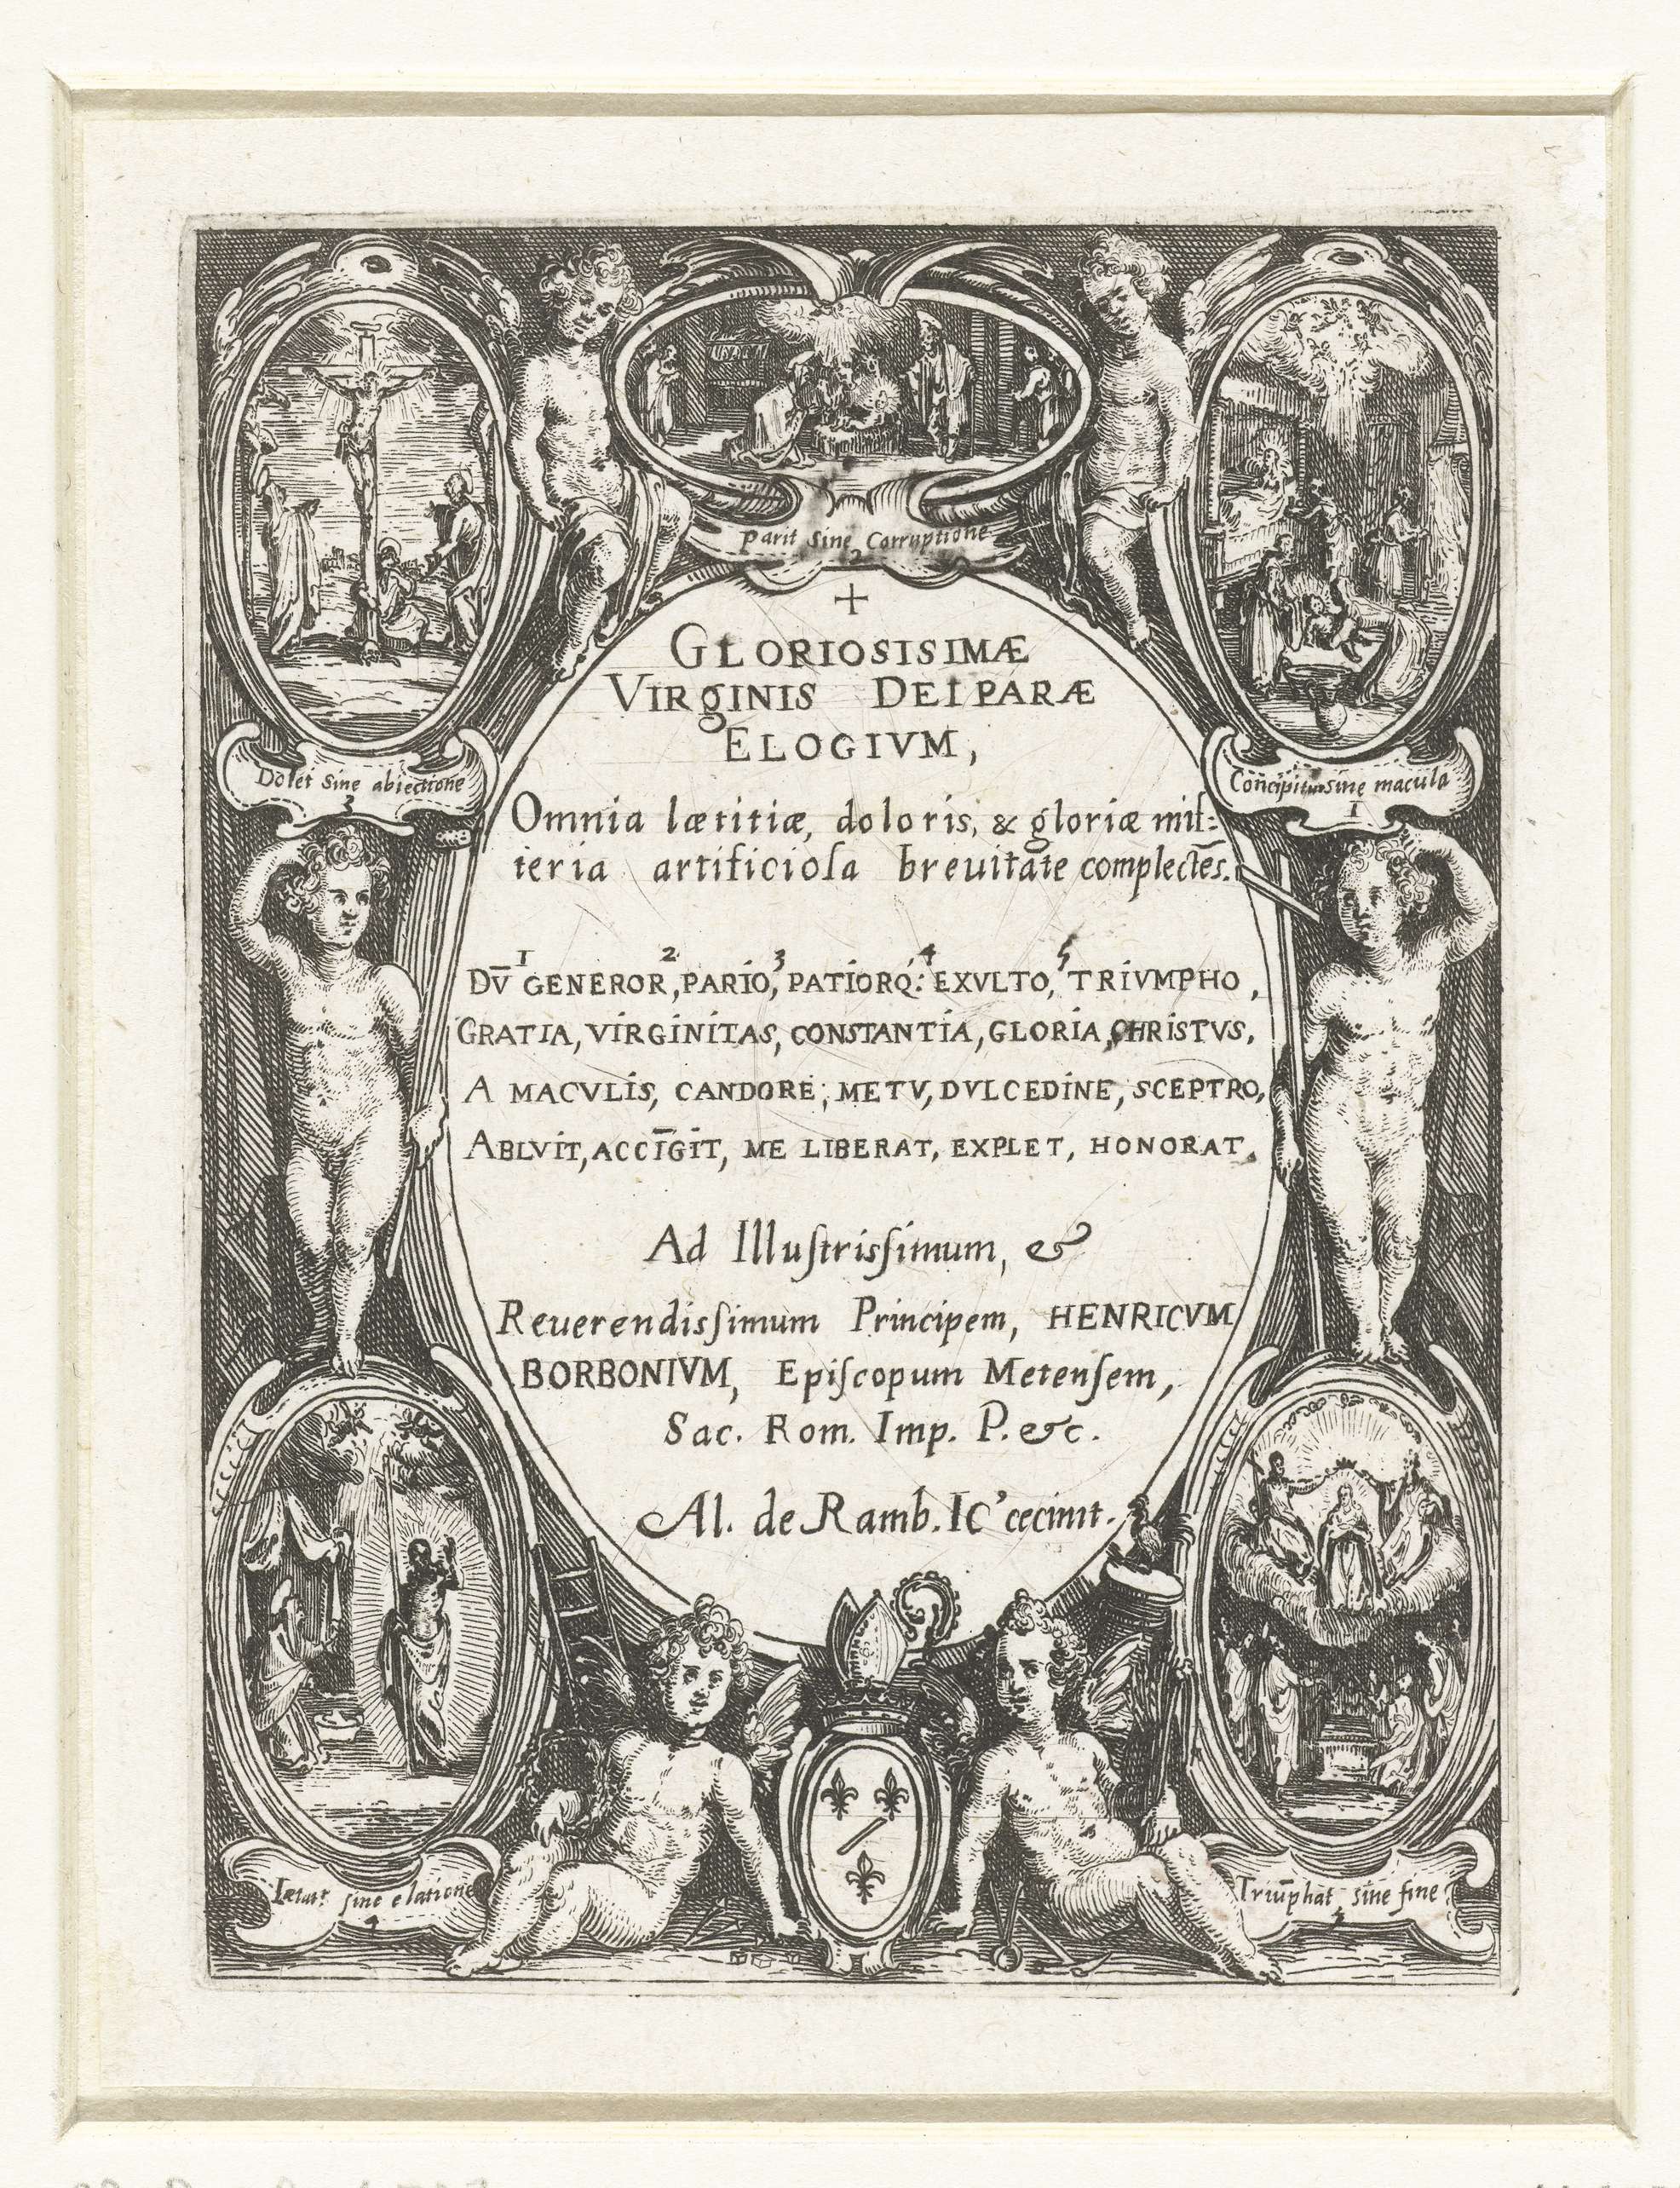 Parit sine Corruptione
2
Dolet sine abiectione
3
Concipitur sine macula
1
+
GLORIOSISIMÆ
VIRGINIS DEIPARÆ
ELOGIVM,
Omnia lætitiæ, doloris, & gloriæ mis=
teria artificiosa breuitate complectēs.
1 2 3 4 5
DV̄ GENEROR, PARIO, PATIORQ: EXVLTO, TRIVMPHO,
GRATIA, VIRGINITAS, CONSTANTIA, GLORIA, CHRISTVS,
A MACVLIS, CANDORE, METV, DVLCEDINE, SCEPTRO,
ABLVIT, ACCĪGIT, ME LIBERAT, EXPLET, HONORAT.
Ad Illustrissimum, &
Reuerendissimum Principem, HENRICVM
BORBONIVM, Episcopum Metensem,
Sac. Rom. Imp. P. &c.
Al. de Ramb. IC' cecinit.
sine elatione
4
Triūphat sine fine
5